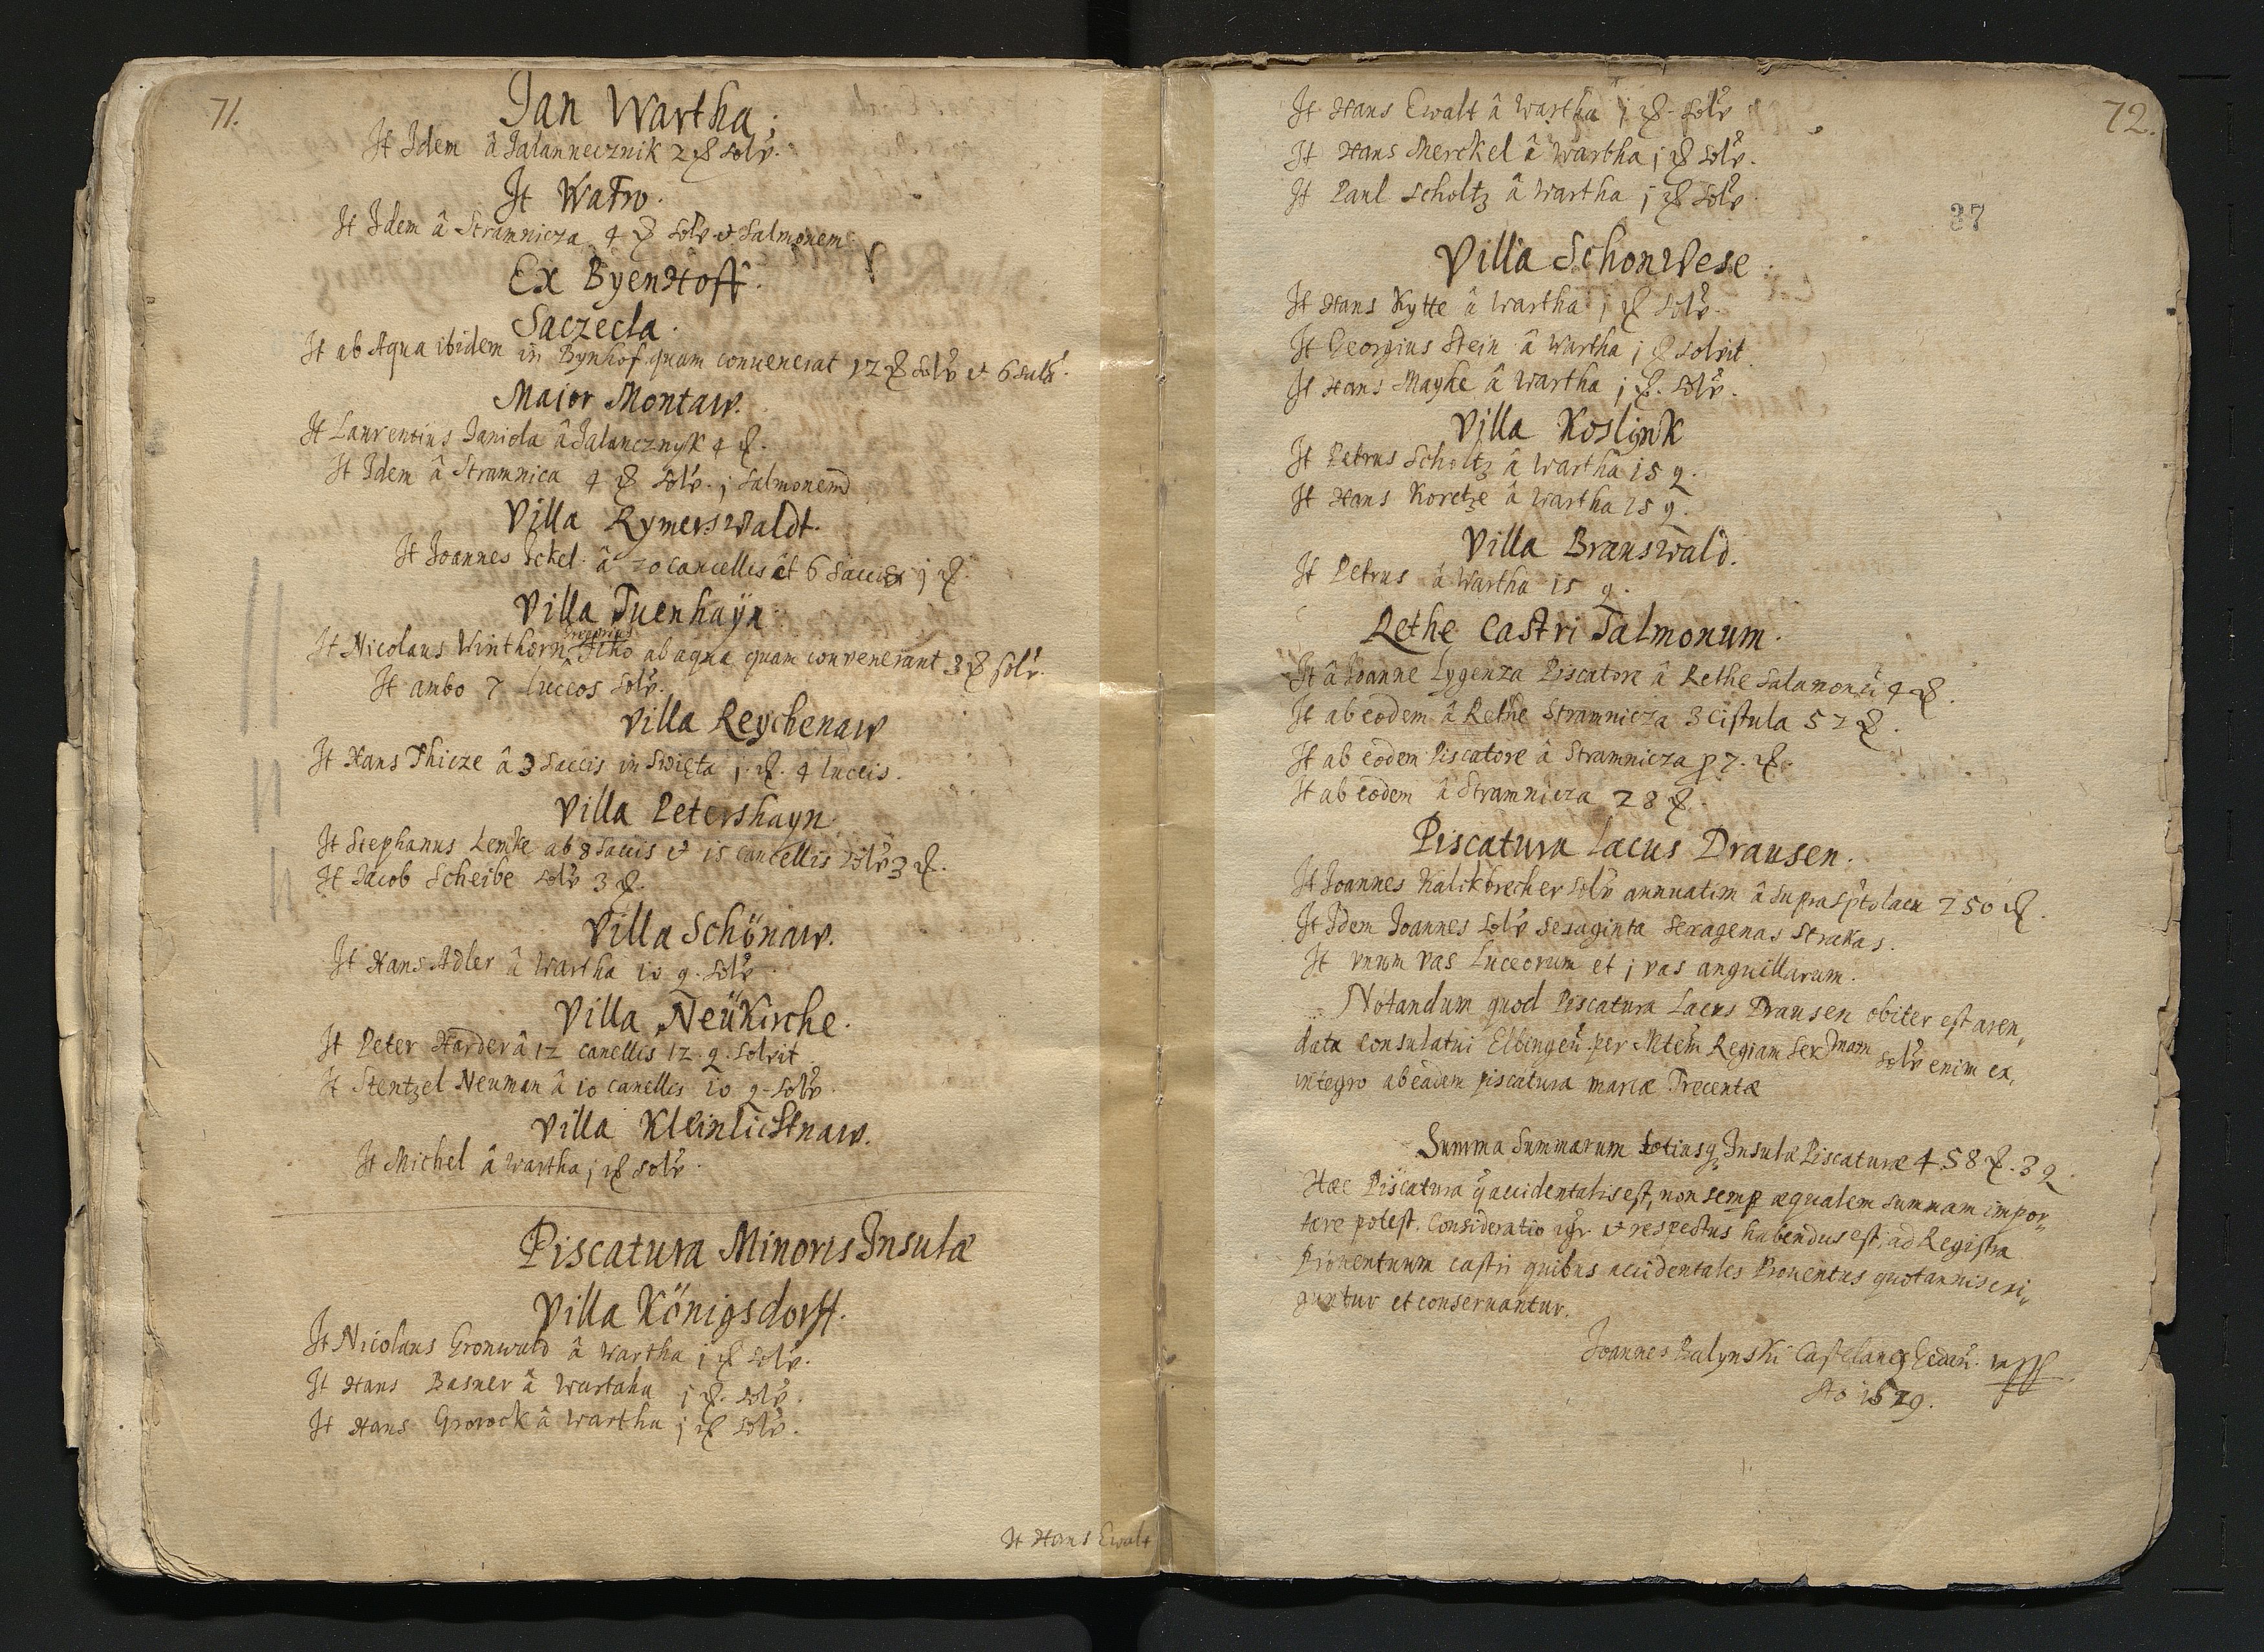 71.
Jan Wartha.
It Idem â Jalannecznik 2 ₰ solv.
It Watro.
It Idem â Stramnicza 4 ₰ solv et Salmonem
Ex Byenhoff.
Saczecla.
It ab Aqua ibidem in Bynhof quam convenerat 12 ₰ solv et 6
Maior Montaw.
It Laurentius Janiola â Jalancznyk 4 ₰.
It Idem â Stramnica 4 ₰ solv. j Salmonem
Villa Rymerswaldt.
It Joannes Ickel â 20 cancellis et 6 Saccis j ₰.
Villa Tuenhaÿn.
Gregorius
It Nicolaus Winthorn ab aqua quam convenerant 3 ₰ solv.
It ambo 7 luceos solv.
Villa Reychenaw
It Hans Thicze â 3 Saccis in Swięta j ₰. 4 luceis.
Villa Petershayn
It Stephanus Lemke ab 8 Saccis et 15 cancellis solv 3 ₰.
It Jacob Scheibe solv 3 ₰.
Villa Schönaw.
It Hans Adler â Wartha 10 g. solv
Villa Neükirche.
It Peter Harder â 12 canellis 12 g. solvit
It Stentzel Neuman â 10 canellis 10 g. solv.
Villa Kleinlichtnaw.
It Michel â Wartha j ₰ solv.
Piscatura Minoris Insulæ
Villa Königsdorff.
It Nicolaus Gronwald â Wartha j ₰ solv.
It Hans Basner â Wartaha j ₰. solv.
It Hans Grorock â Wartha j ₰ solv.
It Hans Ewalt
72.
37
It Hans Ewalt â Wartha j ₰ solv
It Hans Merckel â Wartha j ₰ solv.
It Paul Scholtz â Wartha j ₰ solv
Villa Schonwese.
It Hans Kytte â Wartha j ₰ solv.
It Georgius Stein â Wartha j ₰ solvit
It Hans Mayke â Wartha j ₰. solv.
Villa Koslynk
It Petrus Scholtz â Wartha 15 g.
It Hans Koretze â Wartha 15 g.
Villa Branswald.
It Petrus â Wartha 15 g.
Rethe Castri Salmonum.
It â Joanne Lygenza Piscatore â Rethe Salamonū 4 ₰.
It ab eodem â Rethe Stramnicza 3 cistula 52 ₰.
It ab eodem Piscatore â Stramnicza p 7. ₰.
It ab eodem â Stramnicza 28 ₰.
Piscatura Lacus Drausen.
It Joannes Kalikbrecher solv annuatim â suprascpto lacu 250 ₰.
It Idem Joannes solv sexaginta sexagenas strakas.
It vnum vas Luceorum et j vas anguillarum.
Notandum quod Piscatura Lacus Drausen obiter est aren„
data consulatui Elbingeñ. per Mtem Regiam Sermam solv enim ex
integro ab eadem piscatura marcæ Trecentæ
Summa Summarum totiusq Insulæ Piscaturæ 458 ₰. 3 g.
Hæc Piscatura q̄ accidentalis est, non semp æqualem summam impor„
tare potest. Consideratio igr. et respectus habendus est, ad Registra
Prouentuum castri quibus accidentales Prouentus quotannis exi„
guntur et conseruantur.
Joannes Balynski Castelanq Gedañ. mpp
Ao 1529.